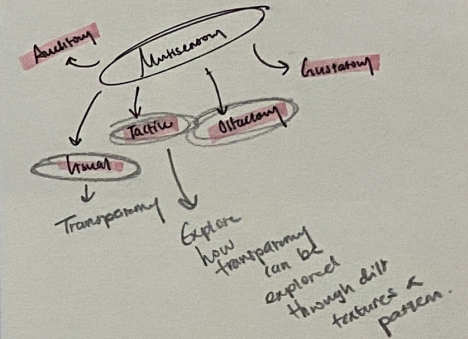 Multisensory
Auditory
Gustatory
Tactile
Olfactory
Visual
Transparency
Explore
how
transparency
can be
explored
through diff
textures &
pattern.